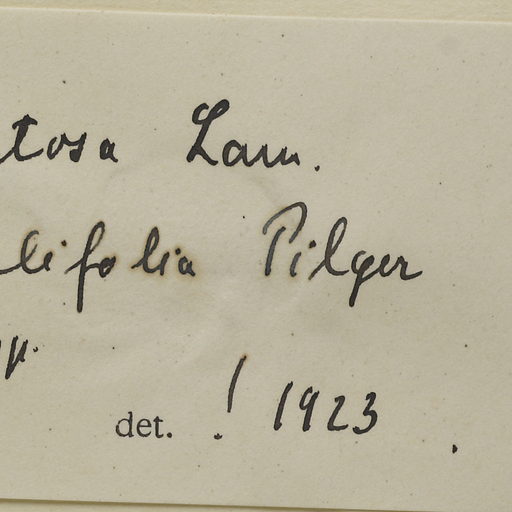 tosa Lam.
lifolia Pilger
p.
det. ! 1923